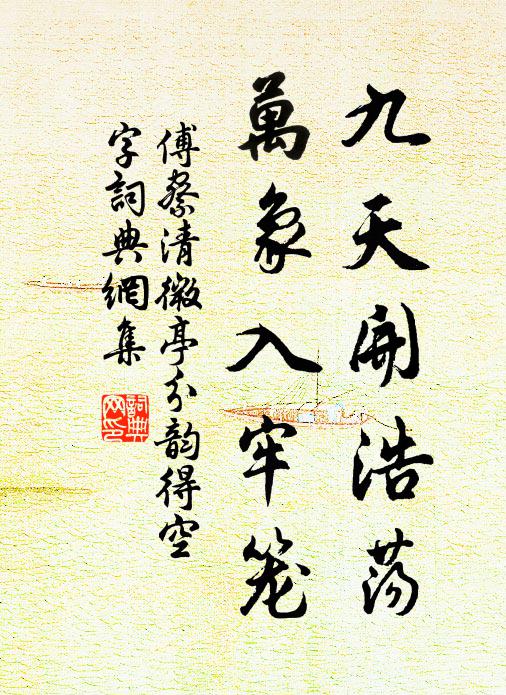 九天開浩蕩
萬象入牢籠
傅察清微亭分韵得空
字詞典網集
詞典
网印